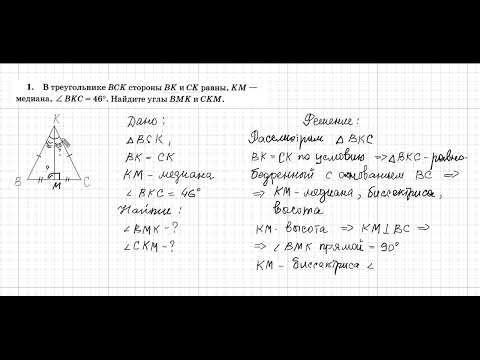 1. В треугольнике BCK стороны BK и CK равны, KM —
медиана, ∠ BKC = 46°. Найдите углы BMK и CKM.
K
?
B
M
C
Дано:
△BCK,
BK = CK
KM - медиана
∠ BKC = 46°
Найти:
∠ BMK - ?
∠ CKM - ?
Решение:
Рассмотрим △ BKC
BK = CK по условию ⇒ △BKC - равно-
бедренной с основанием BC ⇒
⇒ KM - медиана, биссектриса,
высота
KM - высота ⇒ KM ⊥ BC ⇒
⇒ ∠ BMK прямой = 90°
KM - биссектриса ∠